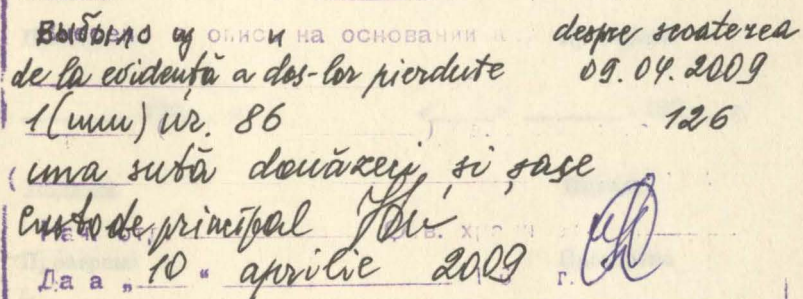 Выбыло из описи на основании а despre scoaterea
de la evidență a dos-lor pierdute 09.04.2009
1 (unu) nr. 86 126
( una sută douăzeci și șase
custode principal
Да а „ 10 “ aprilie 2009 г.